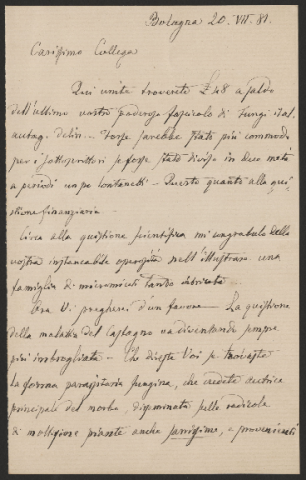 Bologna 20. VII. 81.
Carissimo Collega
Qui unite troverete £ 48 a saldo
dell'ultimo vostro poderoso fascicolo di Fungi ital.
autog. delin. – Forse sarebbe stato più commodo
per i sottoscrittori se fosse stato diviso in due metà
a periodi un po' lontanetti. – Questo quanto alla qui-
stione finanziaria. –
Circa alla quistione scientifica mi congratulo della
vostra instancabile operosità nell'illustrare una
famiglia di micromiceti tanto
Ora Vi pregherei d'un favore – La quistione
della malattia del castagno va diventando sempre
più imbrogliata – Che direste Voi se trovaste
la forma parassitaria fungina, che credete autrice
principale del morbo, disseminata sulle radicole
di moltissime piante anche sanissime, e provenienti